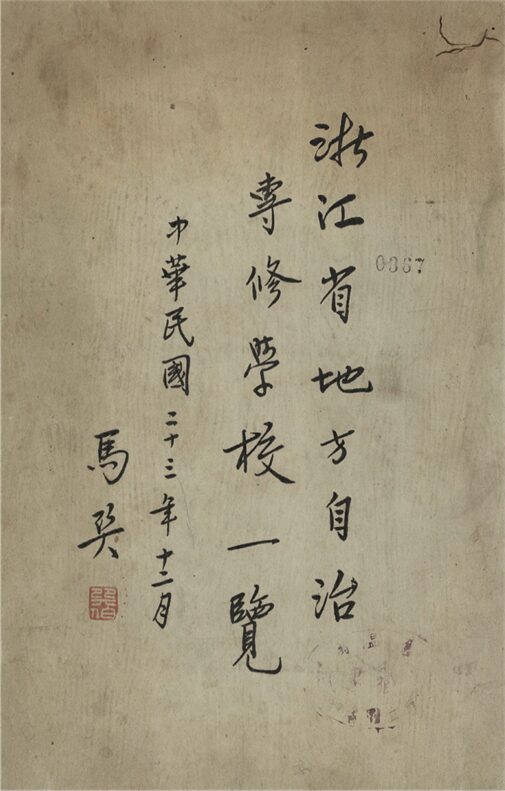 浙江省地方自治
0367
專修學校一覽
中華民國二十三年十二月
馬巽